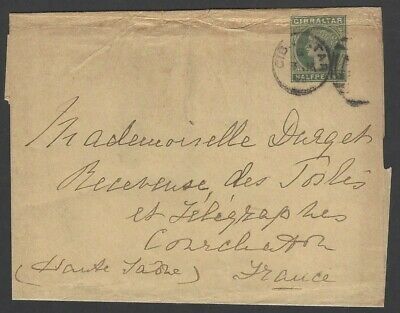 GIBRALTAR
HALFPENNY
Mademoiselle Durget
Receveuse des Postes
et Télégraphes
Courchaton
(Haute Saône) France